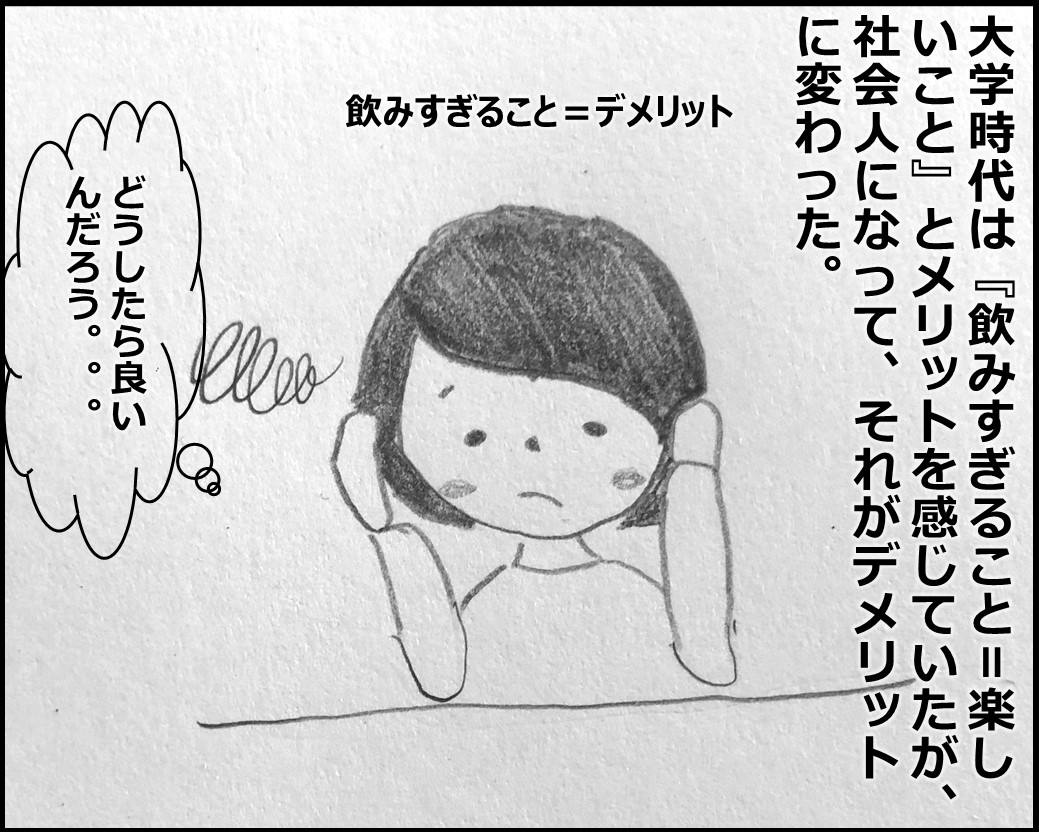 大学時代は『飲みすぎること=楽し
いこと』とメリットを感じていたが、
社会人になって、それがデメリット
に変わった。
飲みすぎること=デメリット
どうしたら良い
んだろう。。。